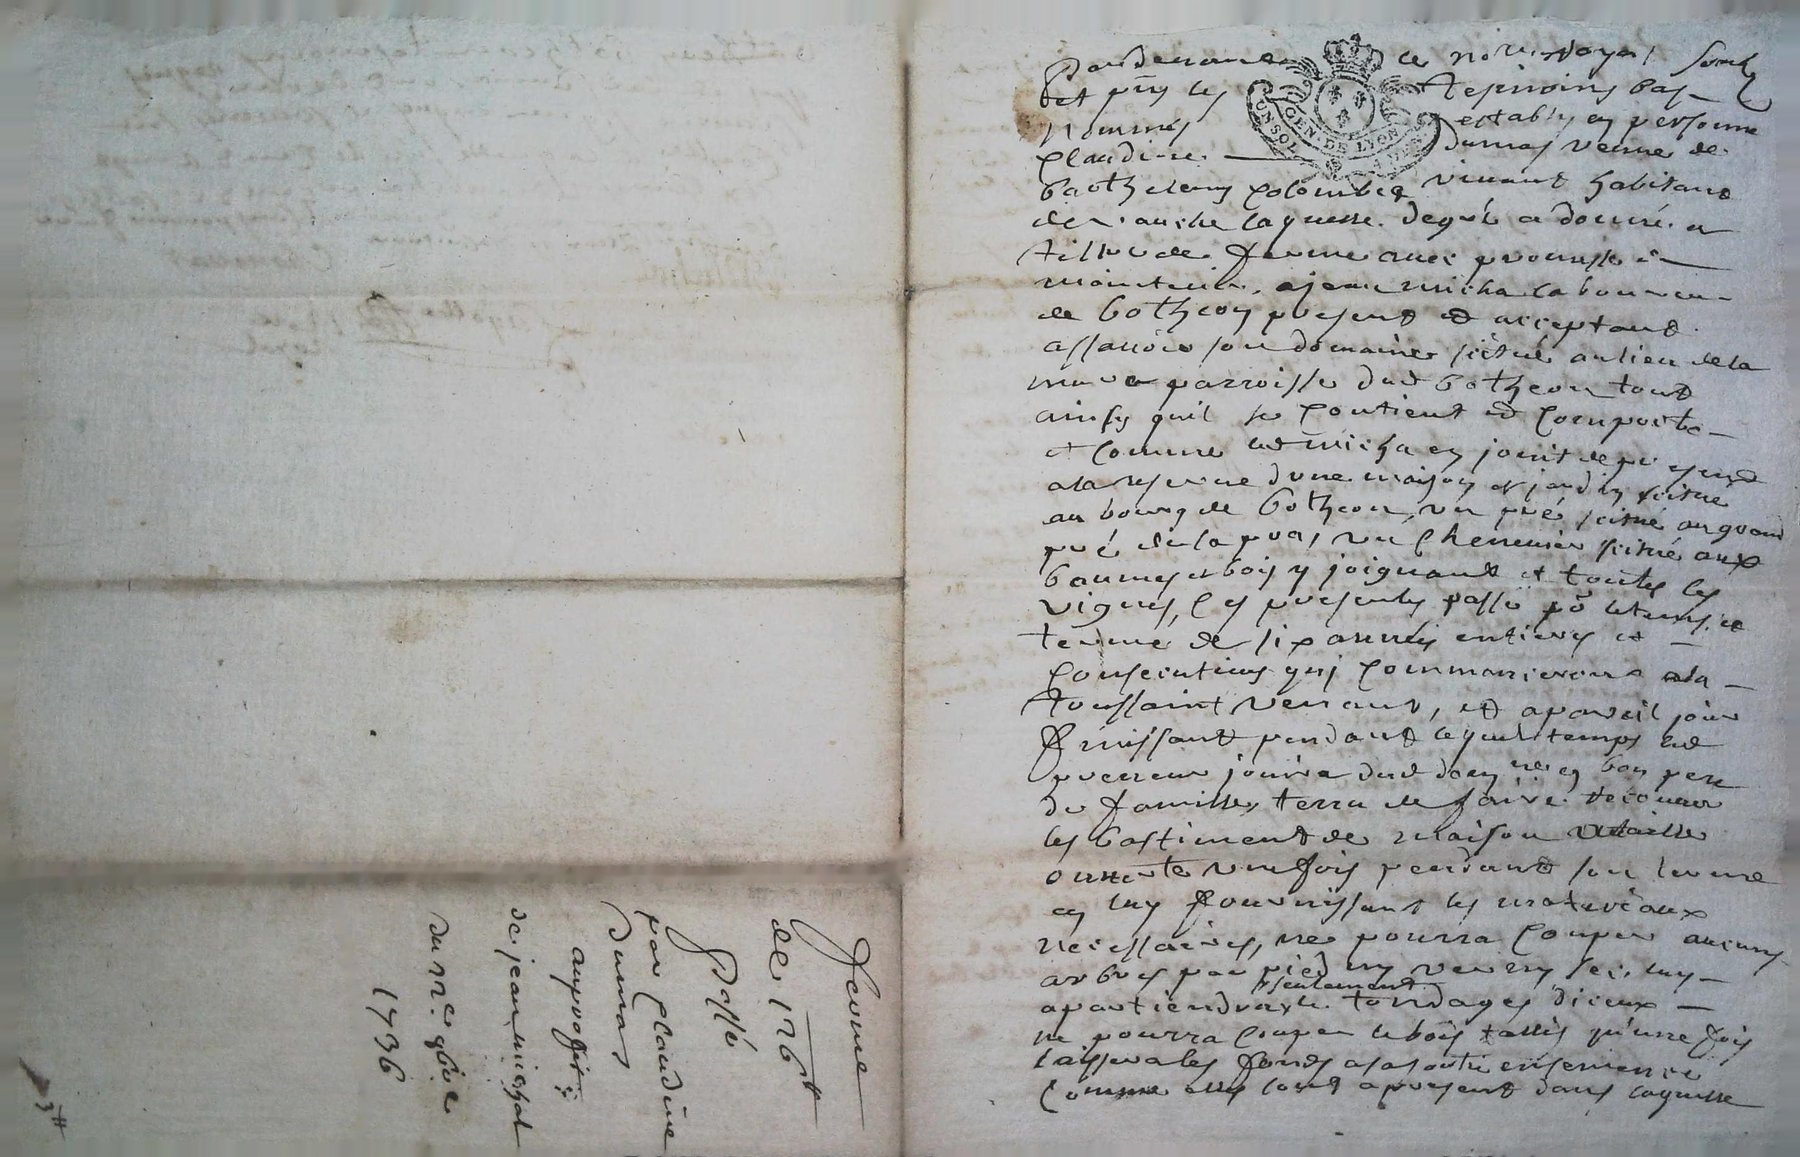 Pardevant le no.re Royal Soub.
et pñs les tesmoins bas
nommés establi en personne
Claudine Dumas veufve de
Barthelemy Colombet vivant habitant
laquelle de gré a donné a
tiltre de ferme avec promesse de
maintenir, a jean micha laboureur
de Botheon present et acceptant
assavoir son domaine scitué au lieu de la
parroisse dud Botheon tout
ainsy quil se Contient et Comporte
et Comme led micha en jouit
a la reserve dune maison et jardin scitué
au bourg de Botheon, un pré scitué au grand
pré de la un Chenevier scitué aux
baumes et bois y joignant et toutes les
vignes, Ces presentes passé po.r le tems et
terme de six années entieres et
Consecutives quy Commanceront a la
Toussaint venant, et a pareil jour
finissant pendant lequel temps led
preneur jouira dud dom.ne en bon pere
de famille, sera de faire recouvrir
les bastiment de maison
une fois pendant son terme
en luy fournissant les materéaux
necessaires, ne pourra Couper aucuns
arbres par pied ny vert ny sec, luy
seulement
apartiendra le tondages diceux
ne pourra Couper le bois tallis qu'une fois
laissera les fonds a sa sortie ensemencé
Comme elles sont a present dans laquelle
CONSOL
GEN DE LYON
ferme
de 126tt
Passé
par Claudine
Dumas
au proffit
de jean michal
du 22e 9bre
1736
3tt